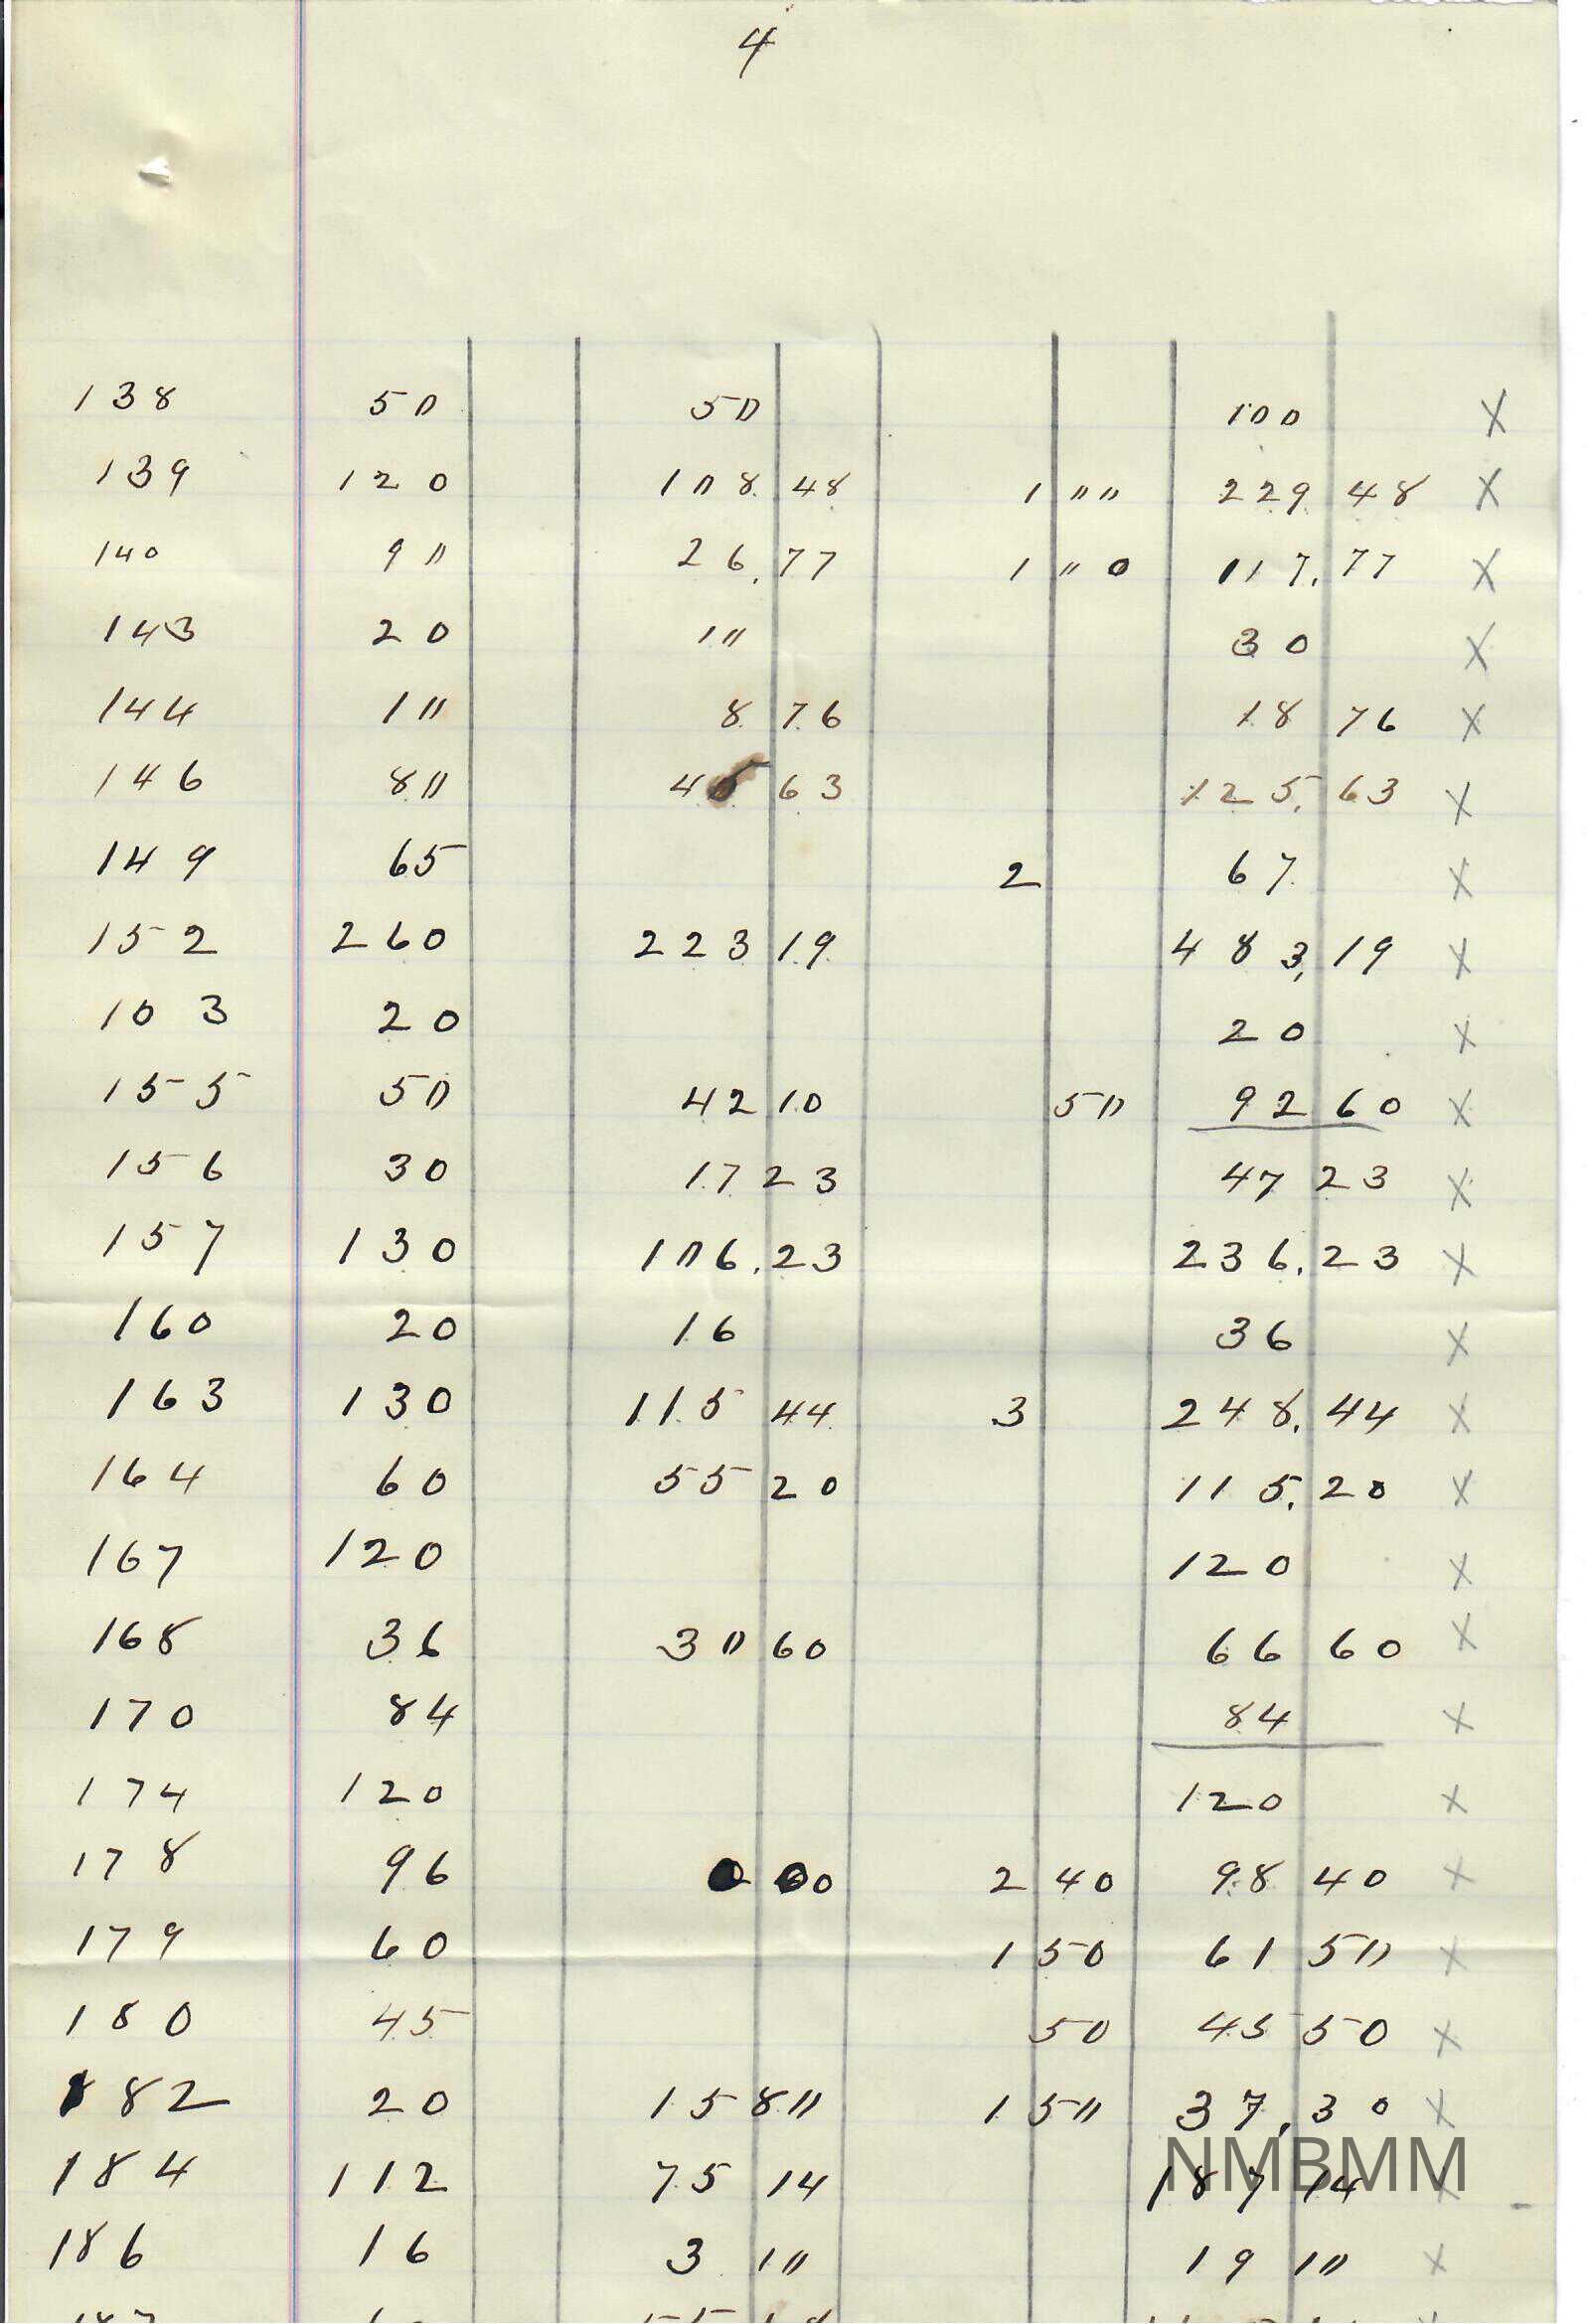 4
138 50 50 100 X
139 120 108 48 1 00 229 48 X
140 90 26.77 1 00 117.77 X
143 20 10 30 X
144 10 8 76 18 76 X
146 80 45 63 125.63 X
149 65 2 67 X
152 260 223 19 483.19 X
103 20 20 X
155 50 42 10 50 92 60 X
156 30 17 23 47 23 X
157 130 106.23 236.23 X
160 20 16 36 X
163 130 115 44 3 248.44 X
164 60 55 20 115.20 X
167 120 120 X
168 36 30 60 66 60 X
170 84 84 X
174 120 120 X
178 96 2 40 98 40 X
179 60 1 50 61 50 X
180 45 50 45 50 X
182 20 15 80 1 50 37.30 X
184 112 75 14 187 14 X
NMBMM
186 16 3 10 19 10 X